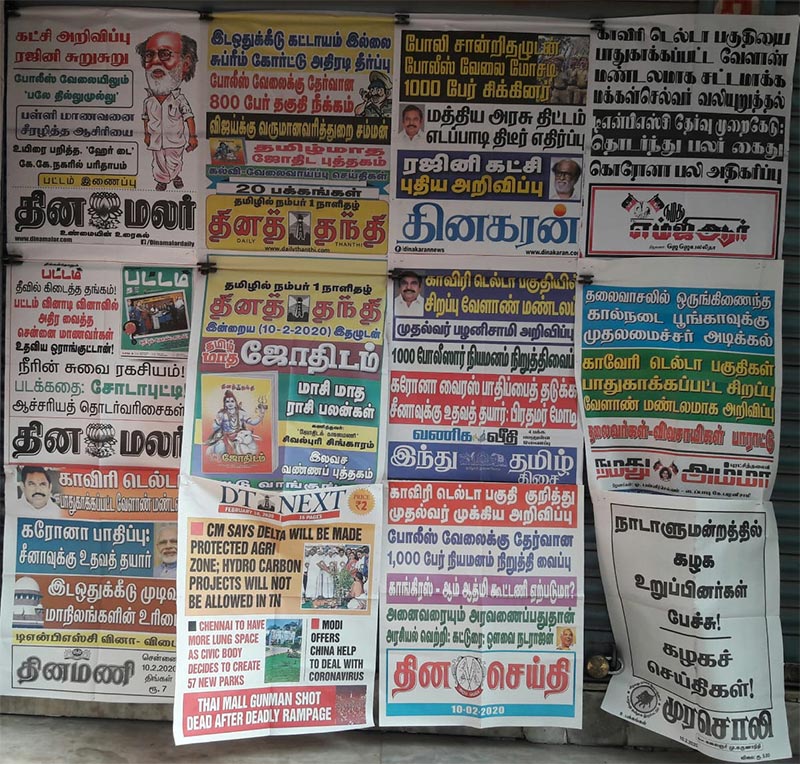 கட்சி அறிவிப்பு
ரஜினி சுறுசுறு
போலீஸ் வேலையிலும்
'பலே தில்லுமுல்லு'
பள்ளி மாணவனை
சீரழித்த ஆசிரியை
உயிரை பறித்த, 'ஹேர் டை'
கே.கே.நகரில் பரிதாபம்
பட்டம் இணைப்பு
தின மலர்
உண்மையின் உரைகல்
www.dinamalar.com
/Dinamalardaily
இடஒதுக்கீடு கட்டாயம் இல்லை
சுப்ரீம் கோர்ட்டு அதிரடி தீர்ப்பு
போலீஸ் வேலைக்கு தேர்வான
800 பேர் தகுதி நீக்கம்
விஜயக்கு வருமானவரித்துறை சம்மன்
தமிழ்மாத
ஜோதிட புத்தகம்
கல்வி-வேலைவாய்ப்பு செய்திகள்
20 பக்கங்கள்
தமிழில் நம்பர் 1 நாளிதழ்
தினத் தந்தி
DAILY THANTHI
www.dailythanthi.com
போலி சான்றிதழுடன்
போலீஸ் வேலை மோசடி
1000 பேர் சிக்கினர்
மத்திய அரசு திட்டம்
எடப்பாடி திடீர் எதிர்ப்பு
ரஜினி கட்சி
புதிய அறிவிப்பு
தினகரன்
/dinakarannews
www.dinakaran.com
காவிரி டெல்டா பகுதியை
பாதுகாக்கப்பட்ட வேளாண்
மண்டலமாக சட்டமாக்க
மக்கள்செல்வர் வலியுறுத்தல்
டிஎன்பிஎஸ்சி தேர்வு முறைகேடு:
தொடர்ந்து பலர் கைது!
கொரோனா பலி அதிகரிப்பு
நமது
எம்ஜிஆர்
பட்டம்
தீவில் கிடைத்த தங்கம்!
பட்டம் வினாடி வினாவில்
அதிர வைத்த
சென்னை மாணவர்கள்
உதவிய ஒராங்குட்டான்!
பட்டம்
நீரின் சுவை ரகசியம்!
படக்கதை: சோடாபுட்டி
ஆச்சரியத் தொடர்வரிசைகள்
தின மலர்
தமிழில் நம்பர் 1 நாளிதழ்
தினத் தந்தி
இன்றைய (10-2-2020) இதழுடன்
தமிழ் மாத ஜோதிடம்
மாசி மாத
ராசி பலன்கள்
சிவல்புரி சிங்காரம்
இலவச
வண்ணப் புத்தகம்
ஜோதிடம்
காவிரி டெல்டா பகுதியில்
சிறப்பு வேளாண் மண்டலம்
முதல்வர் பழனிசாமி அறிவிப்பு
1000 போலீஸார் நியமனம் நிறுத்திவைப்பு
கரோனா வைரஸ் பாதிப்பைத் தடுக்க
சீனாவுக்கு உதவத் தயார்: பிரதமர் மோடி
வணிக வீதி
இந்து தமிழ்
திசை
தலைவாசலில் ஒருங்கிணைந்த
கால்நடை பூங்காவுக்கு
முதலமைச்சர் அடிக்கல்
காவேரி டெல்டா பகுதிகள்
பாதுகாக்கப்பட்ட சிறப்பு
வேளாண் மண்டலமாக அறிவிப்பு
தலைவர்கள்-விவசாயிகள் பாராட்டு
நமது அம்மா
காவிரி டெல்டா
பாதுகாக்கப்பட்ட வேளாண் மண்டலம்
கரோனா பாதிப்பு:
சீனாவுக்கு உதவத் தயார்
இடஒதுக்கீடு முடிவு
மாநிலங்களின் உரிமை
டிஎன்பிஎஸ்சி வினா- விடை
தினமணி
சென்னை
10.2.2020
திங்கள்
ரூ. 7
DT NEXT
FEBRUARY 10, 2020
16 PAGES
PRICE ₹2
CM SAYS DELTA WILL BE MADE
PROTECTED AGRI
ZONE; HYDRO CARBON
PROJECTS WILL NOT
BE ALLOWED IN TN
CHENNAI TO HAVE
MORE LUNG SPACE
AS CIVIC BODY
DECIDES TO CREATE
57 NEW PARKS
MODI
OFFERS
CHINA HELP
TO DEAL WITH
CORONAVIRUS
THAI MALL GUNMAN SHOT
DEAD AFTER DEADLY RAMPAGE
காவிரி டெல்டா பகுதி குறித்து
முதல்வர் முக்கிய அறிவிப்பு
போலீஸ் வேலைக்கு தேர்வான
1,000 பேர் நியமனம் நிறுத்தி வைப்பு
காங்கிரஸ் - ஆம் ஆத்மி கூட்டணி ஏற்படுமா?
அனைவரையும் அரவணைப்பதுதான்
அரசியல் வெற்றி: கட்டுரை: ஔவை நடராஜன்
தின செய்தி
10-02-2020
நாடாளுமன்றத்தில்
கழக
உறுப்பினர்கள்
பேச்சு!
கழகச்
செய்திகள்!
முரசொலி
10.2.2020